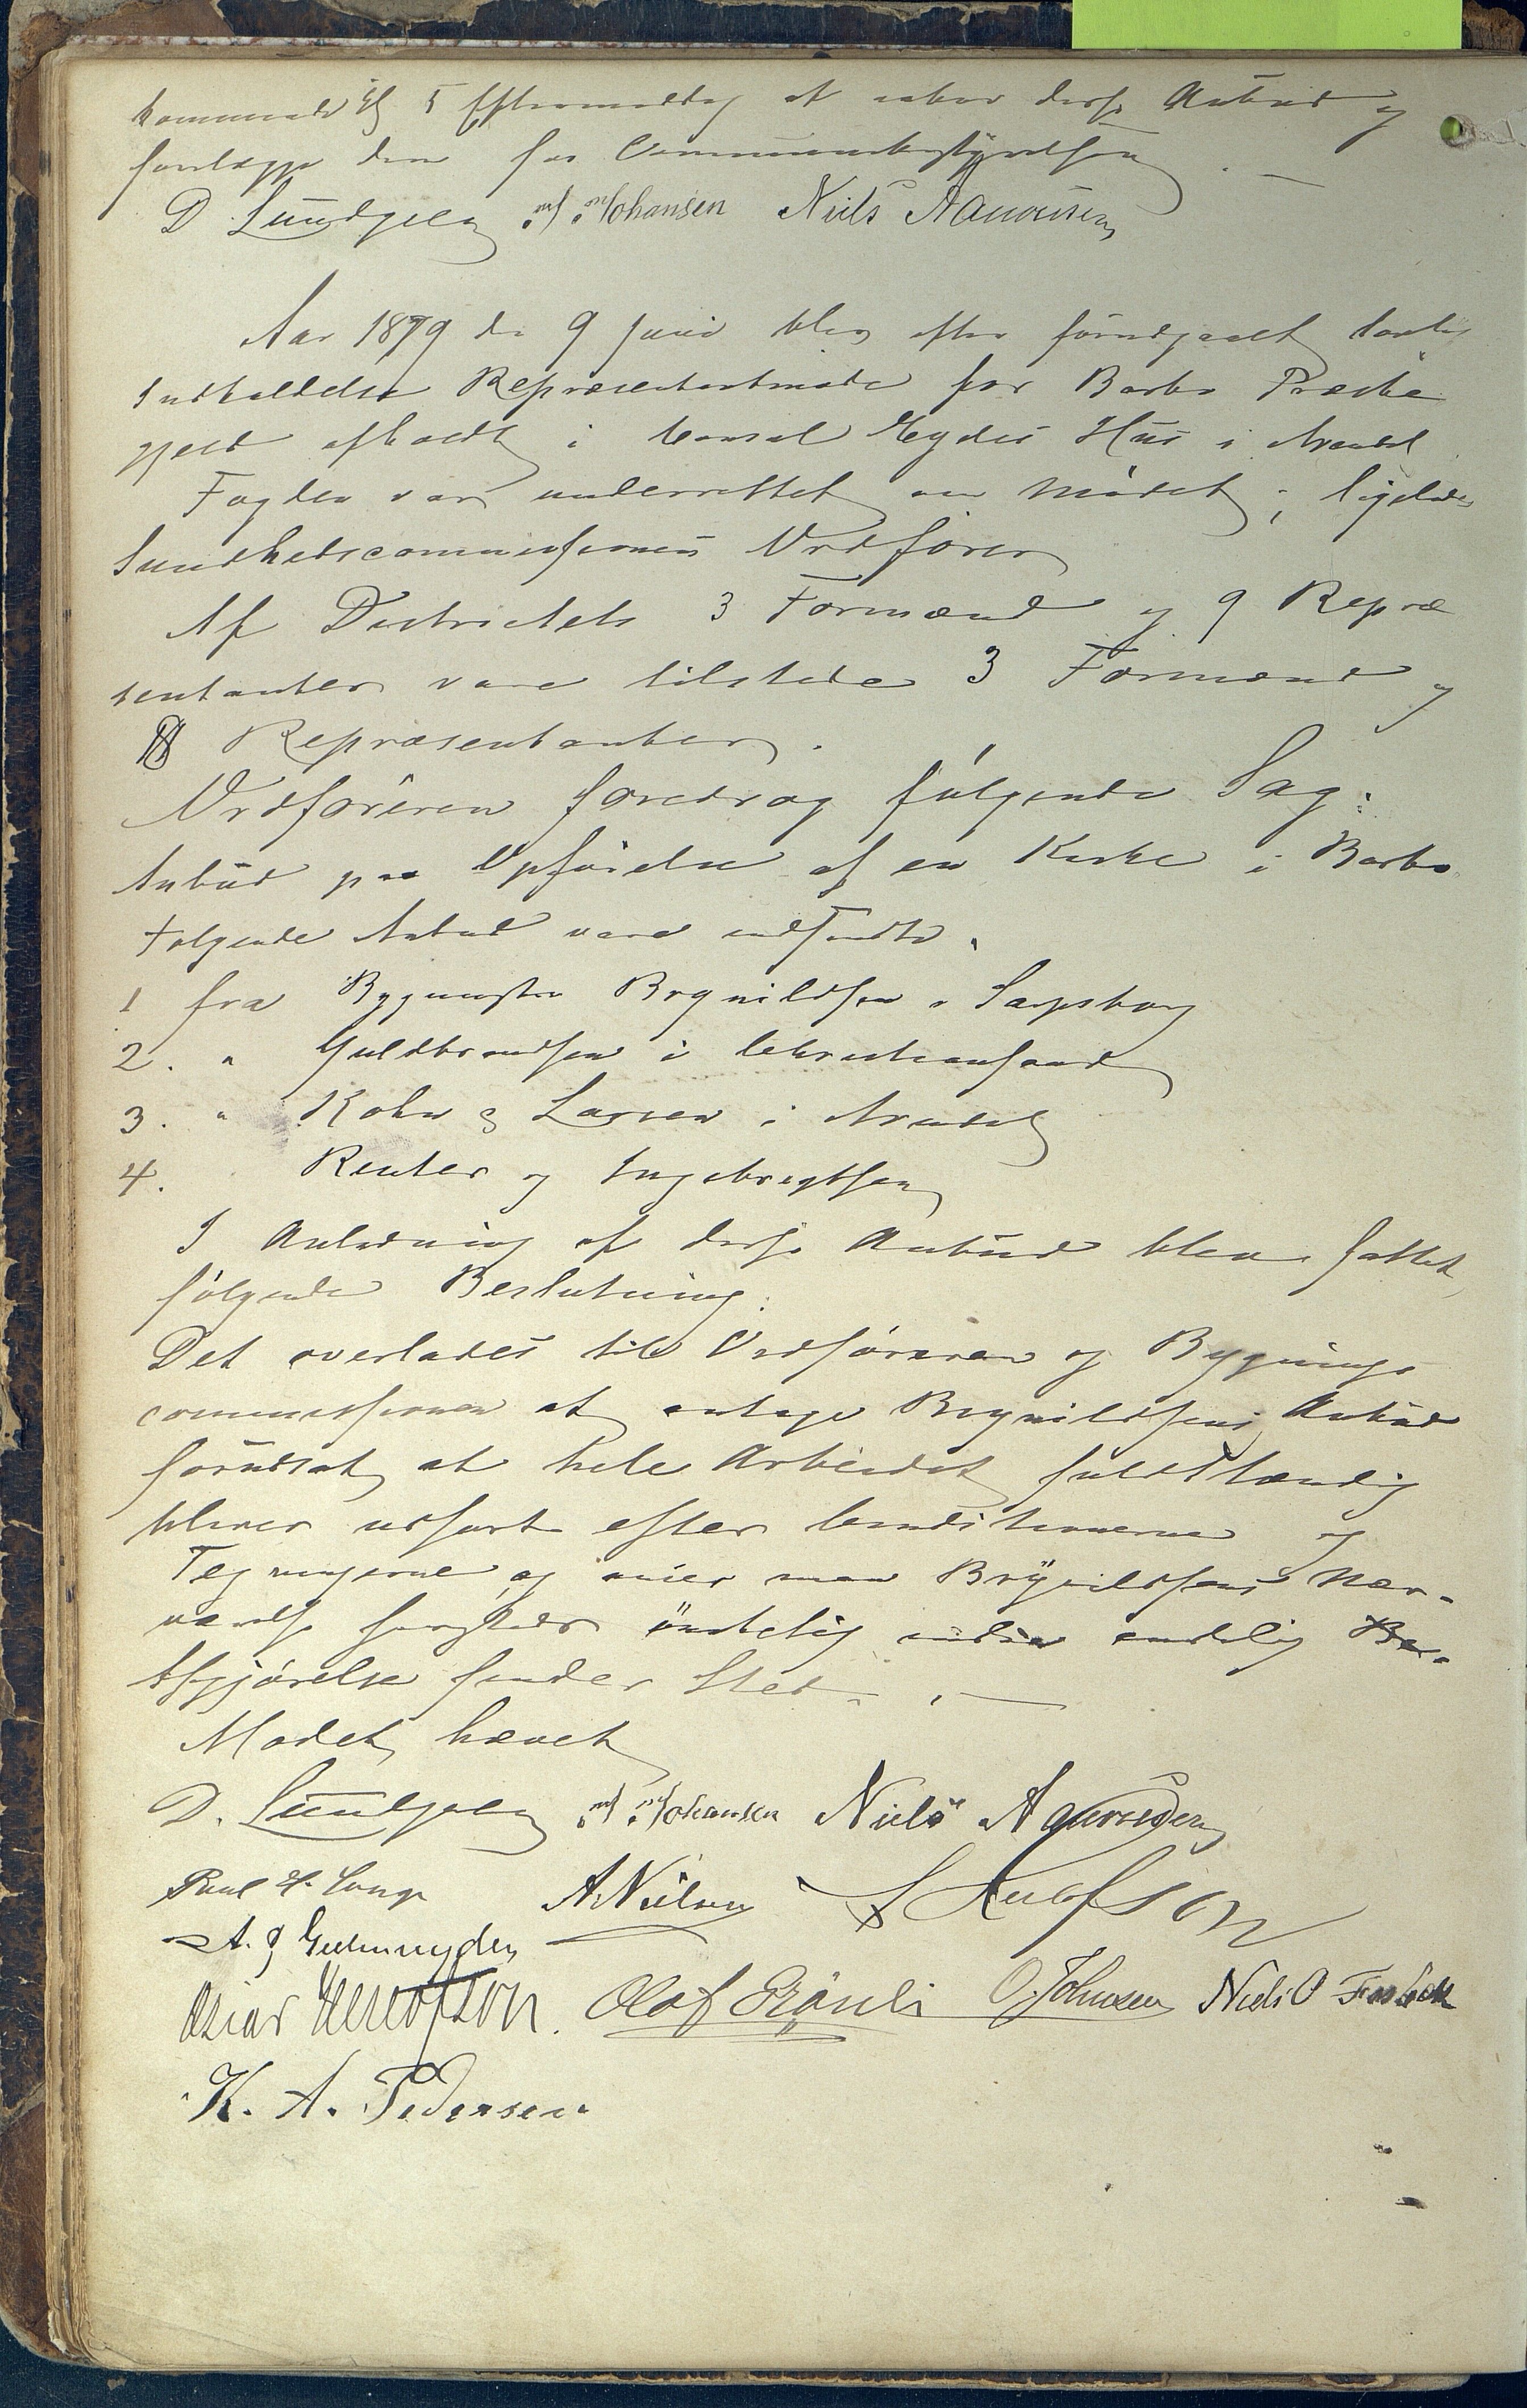 kommende Kl 5 Eftermiddag at aabne disse Anbud og
forelægge dem for Communebestyrelsen. —
D. Lundgren J. M. Johansen Niels
Aar 1879 den 9 Juni blev efter forudgaaet lovlig
Indkaldelse Repræsentantmøde for Barbo Præste
gjeld afholdt i Consul Eydes Hus i Arendal
Fogden var underrettet om Mødet; ligeledes
Sundhedscommissionens Ordfører
Af Districtets 3 Formænd og 9 Repræ
sentanter vare tilstede 3 Formænd og
Repræsentanter.
Ordføreren foredrog følgende Sag:
Anbud paa Opførelse af en Kirke i Barbo.
Følgende Anbud vare indsendte.
1 fra Bygmester Brynildsen i Sarpsborg
2. " Guldbrandsen i Christiansand
3. " Kohn & Larsen i Arendal
4. Reuter og Ingebregtsen
I Anledning af disse Anbud blev fattet
følgende Beslutning:
Det overlades til Ordføreren og Bygnings
commissionen at antage Brynildsens Anbud
forudsat at hele Arbeidet fuldstændig
bliver udført efter Conditionerne og
Tegningerne og anser man Brynildsens Nær-
værelse ønskelig inden endelig
Afgjørelse finder Sted. —
Mødet hævet
D. Lundgren J. M. Johansen Niels
Poul H. Lange A. Nielsen
A. J. Gulmyden
Oscar Olof O. Johnsen Niels O
K. A. Pedersen